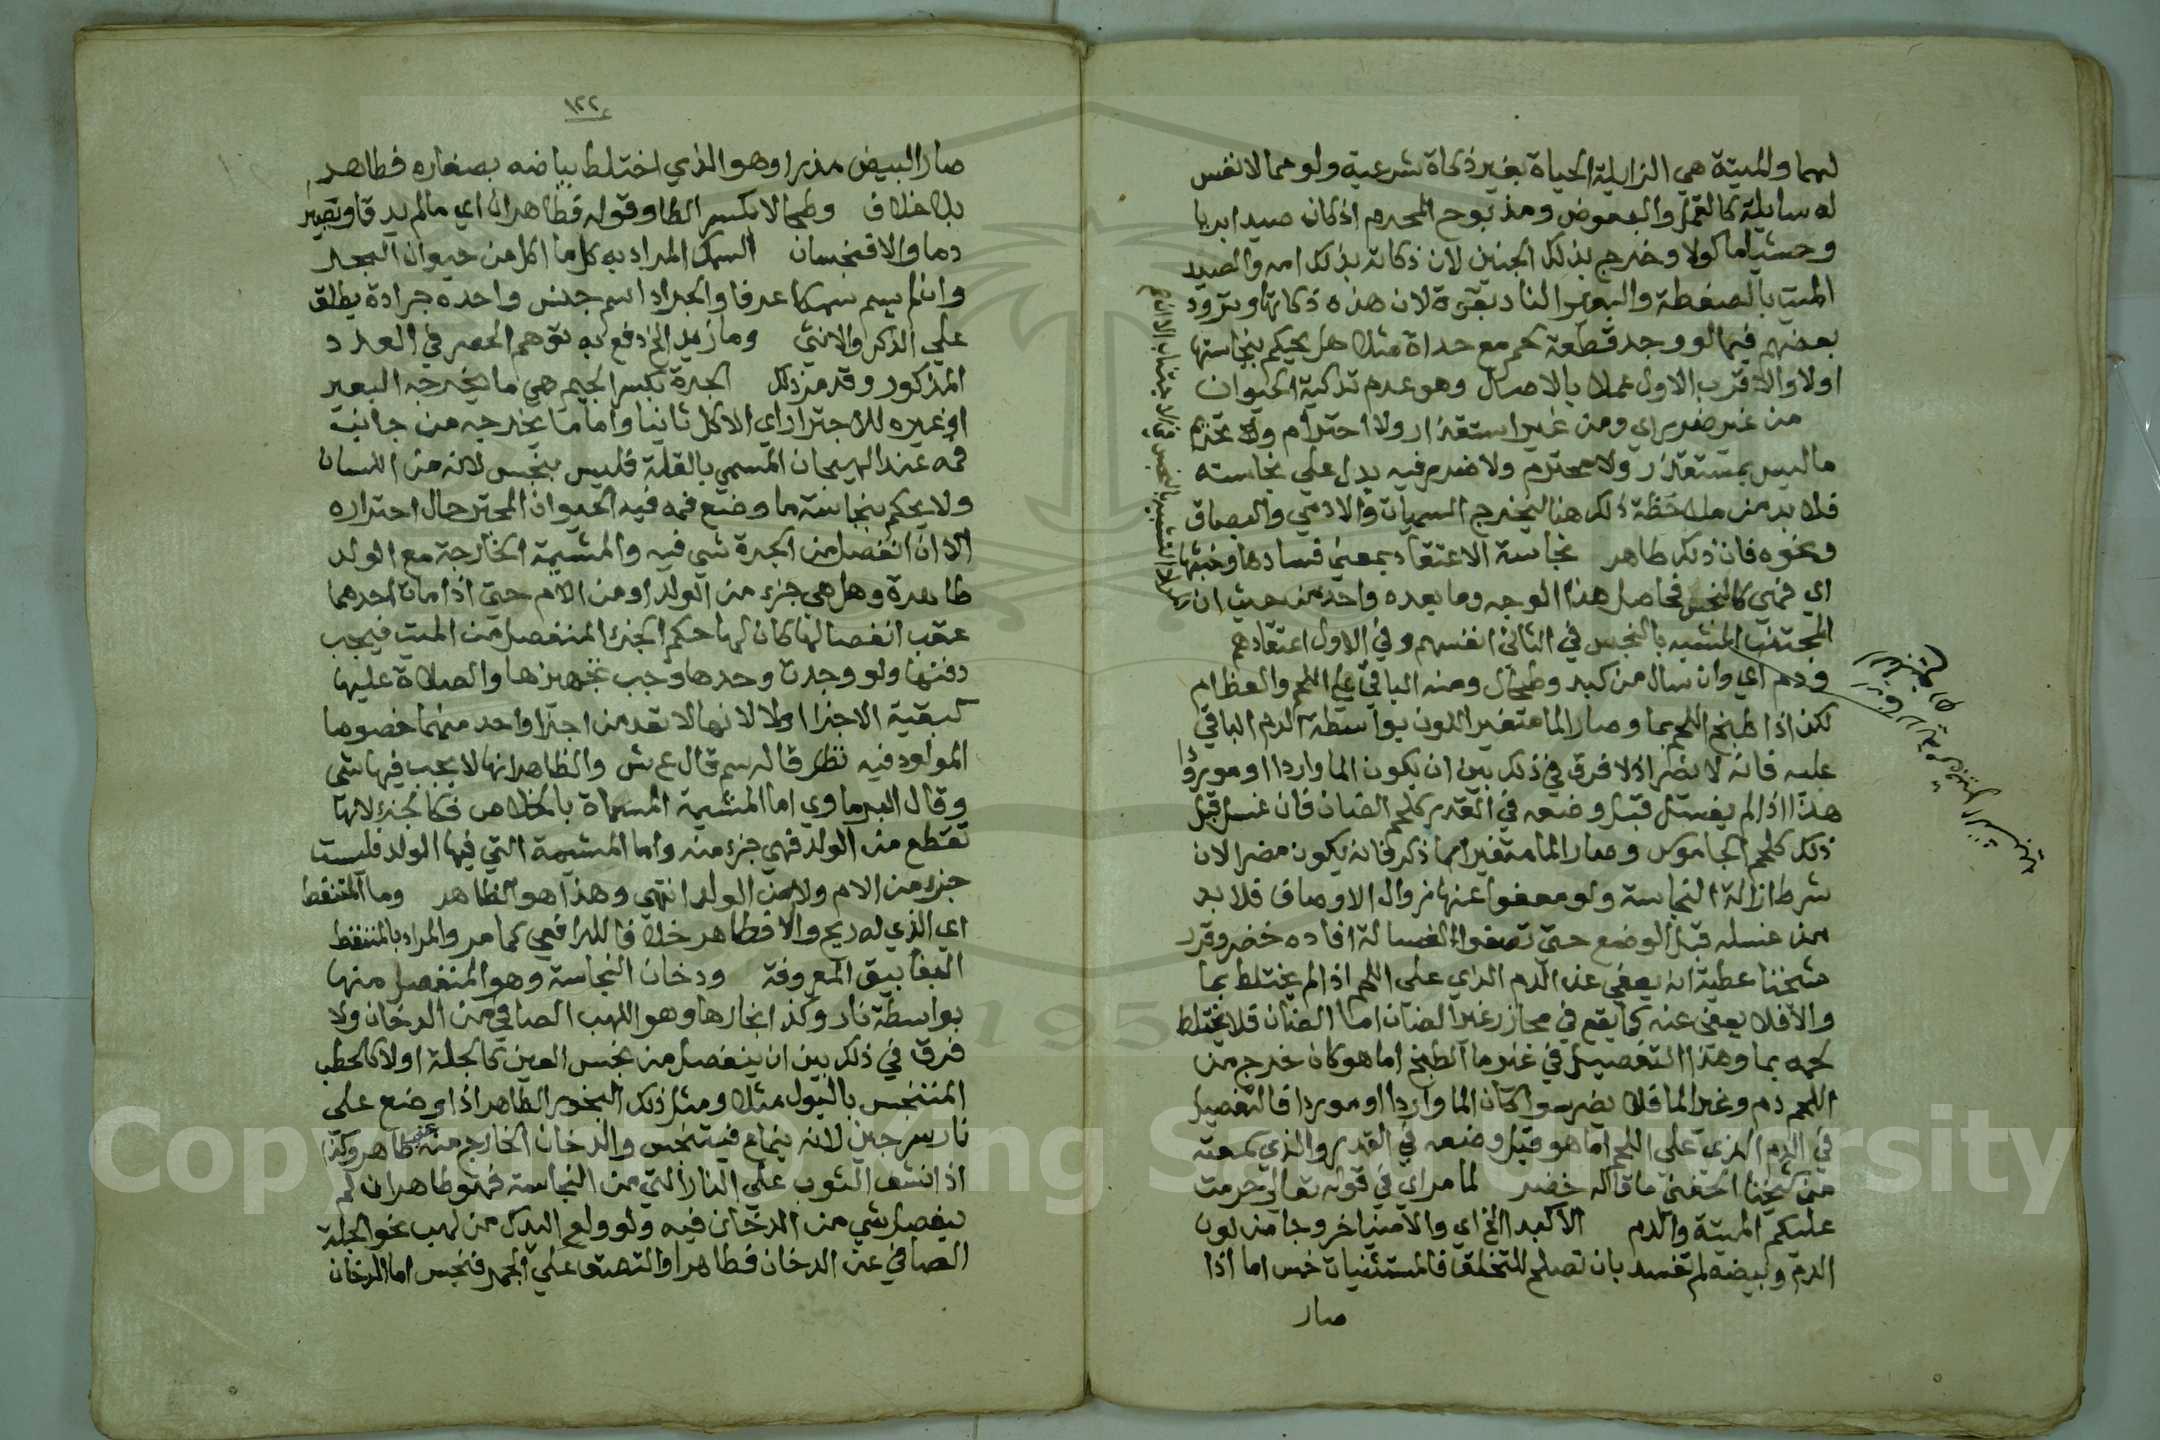 لهما والميتة هي الزايلة الحياة بغير ذكاة شرعية ولو مما لا نفس
له سايلة كالقمل والبعوض ومذبوح المحرم اذ كان صيدا بريا
وحشيا ماكولا وخرج بذلك الجنين لان ذكاته بذكاة امه والصيد
الميت بالضغطة والبعير الناد بعقره لان هذه ذكاتها وتردد
بعضهم فيما لو وجد قطعة لحم مع حداة مثلا هل يحكم بنجاستها
اولا والاقرب الاول عملا بالاصل وهو عدم تذكية الحيوان
من غير ضرر اي ومن غير استقذار ولا احترام والا تحريم
ما ليس بمستقذر ولا محترم ولا ضرر فيه يدل علي نجاسته
فلا بد من ملاحظة ذلك هنا ليخرج السميات والادمي والبصاق
ونحوه فان ذلك طاهر نجاسة الاعتقاد بمعني فسادها وخبثها
اي فهي كالنجس فحاصل هذا الوجه وما بعده واحد من حيث ان
المجتنب المشبه بالنجس في الثاني انفسهم وفي الاول اعتقادهم
ودم اي وان سال من كبد وطحال ومنه الباقي علي اللحم والعظام
لكن اذا طبخ اللحم بما وصار الما متغير اللون بواسطة الدم الباقي
عليه فانه لا يضر اذ لا فرق في ذلك بين ان يكون الما واردا او مورودا
هذا اذا لم يغسل قبل وضعه في القدر كلحم الضان فان غسل قبل
ذلك كلحم الجاموس وصار الما متغيرا بما ذكر فانه يكون مضرا لان
شرط ازالة النجاسة ولو معفوا عنها زوال الاوصاف فلا بد
من غسله قبل الوضع حتي تصفو الغسالة افاده خضر وقرر
شيخنا عطية انه يعفي عن الدم الذي علي اللحم اذا لم يختلط بما
والا فلا يعفي عنه كما يقع في مجازر غير الضان اما الضان فلا يختلط
لحمه بما وهذا التفصيل في غير ما الطبخ اما هو كان خرج من
اللحم دم وغير الما فلا يضر سوا كان الما واردا او موردا فالتفصيل
في الدم الذي علي اللحم اما هو قبل وضعه في القدر والذي سمعته
من شيخنا الحفني ما قاله خضر لما مر اي في قوله تعالي حرمت
عليكم الميتة والدم الا كبد الخ اي والا منيا خروجا من لون
الدم وبيضه لم تفسد بان تصلح للتخلق فالمستثنيات خمس اما اذا
صار
١٢٢
صار البيض مذرا وهو الذي اختلط بياضه بصفاره فطاهر
بلا خلاف وطحالا بكسر الطا وقوله فطاهران اي ما لم يدقا وتصير
دما والا فنجسان السمك المراد به كل ما اكل من حيوان البحر
وان لم يسم سمكا عرفا والجراد اسم جنس واحده جرادة يطلق
علي الذكر والانثي وما زيد الخ دفع به توهم الحصر في العدد
المذكور وقد مر ذلك الجرة بكسر الجيم هي ما يخرجه البعير
او غيره للاجترار اي الاكل ثانيا واما ما يخرجه من جانب
فمه عند الهيجان المسمي بالقلة فليس بنجس لانه من اللسان
ولا يحكم بنجاسة ما وضع فمه فيه الحيوان المجتر حال اجتراره
الا ان انفصل من الجرة شي فيه والمشيمة الخارجة مع الولد
طاهرة وهل هي جزء من الولد او من الام حتي اذا مات احدهما
عقب انفصالها كان لها حكم الجزء المنفصل من الميت فيجب
دفنها ولو وجدت وحدها وجب تجهيزها والصلاة عليها
كبقية الاجزا اولا لانها لا تعد من اجزا واحد منهما خصوصا
المولود فيه نظر قاله سم قال ع ش والظاهر انها لا يجب فيها شي
وقال البرماوي اما المشيمة المسماة بالخلاص فكالجزء لانها
تقطع من الولد فهي جزء منه واما المشيمة التي فيها الولد فليست
جزء من الام ولا من الولد انتهي وهذا هو الظاهر وما المتنفط
اي الذي له ريح والا فطاهر خلافا للرافعي كما مر والمراد بالمتنفط
البقابيق المعروفة ودخان النجاسة وهو المنفصل منها
بواسطة نار وكذا بخارها وهو اللهب الصافي من الدخان ولا
فرق في ذلك بين ان ينفصل من نجس العين كالجلة اولا كالحطب
المتنجس بالبول مثلا ومثل ذلك البخور الطاهر اذا وضع علي
نار سرجين لانه ينماع فيتنجس والدخان الخارج منه طاهر وكذا
اذا نشف الثوب علي النار التي من النجاسة فهو طاهر ان لم
ينفصل شي من الدخان فيه ولو ولع البدل من لهب نحو الجلة
الصافي عن الدخان فطاهر او التصق علي الجمر فنجس اما الدخان